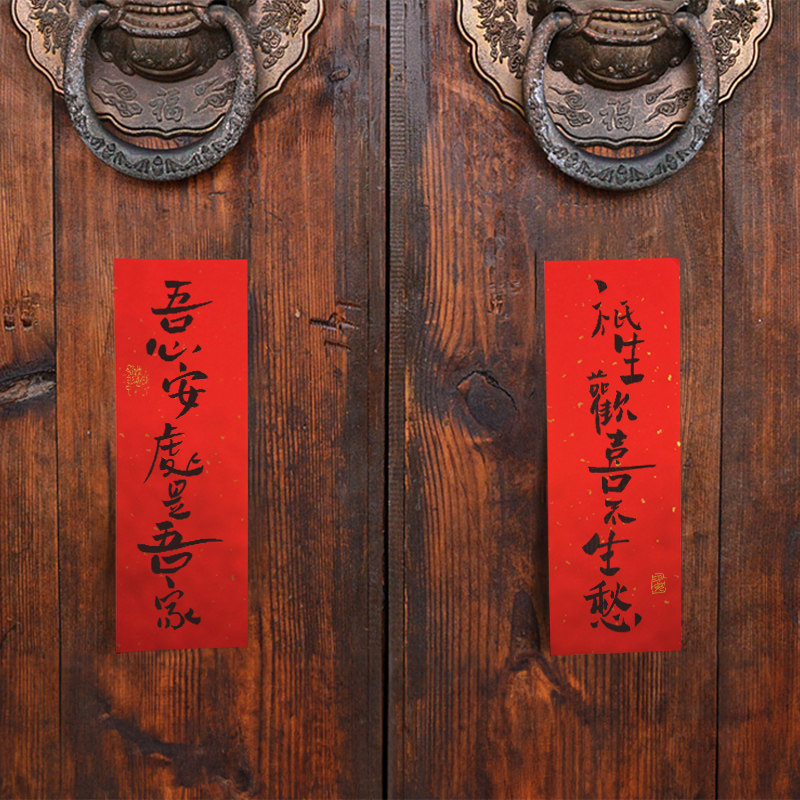 福
福
祇生歡喜不生愁
吾心安處是吾家